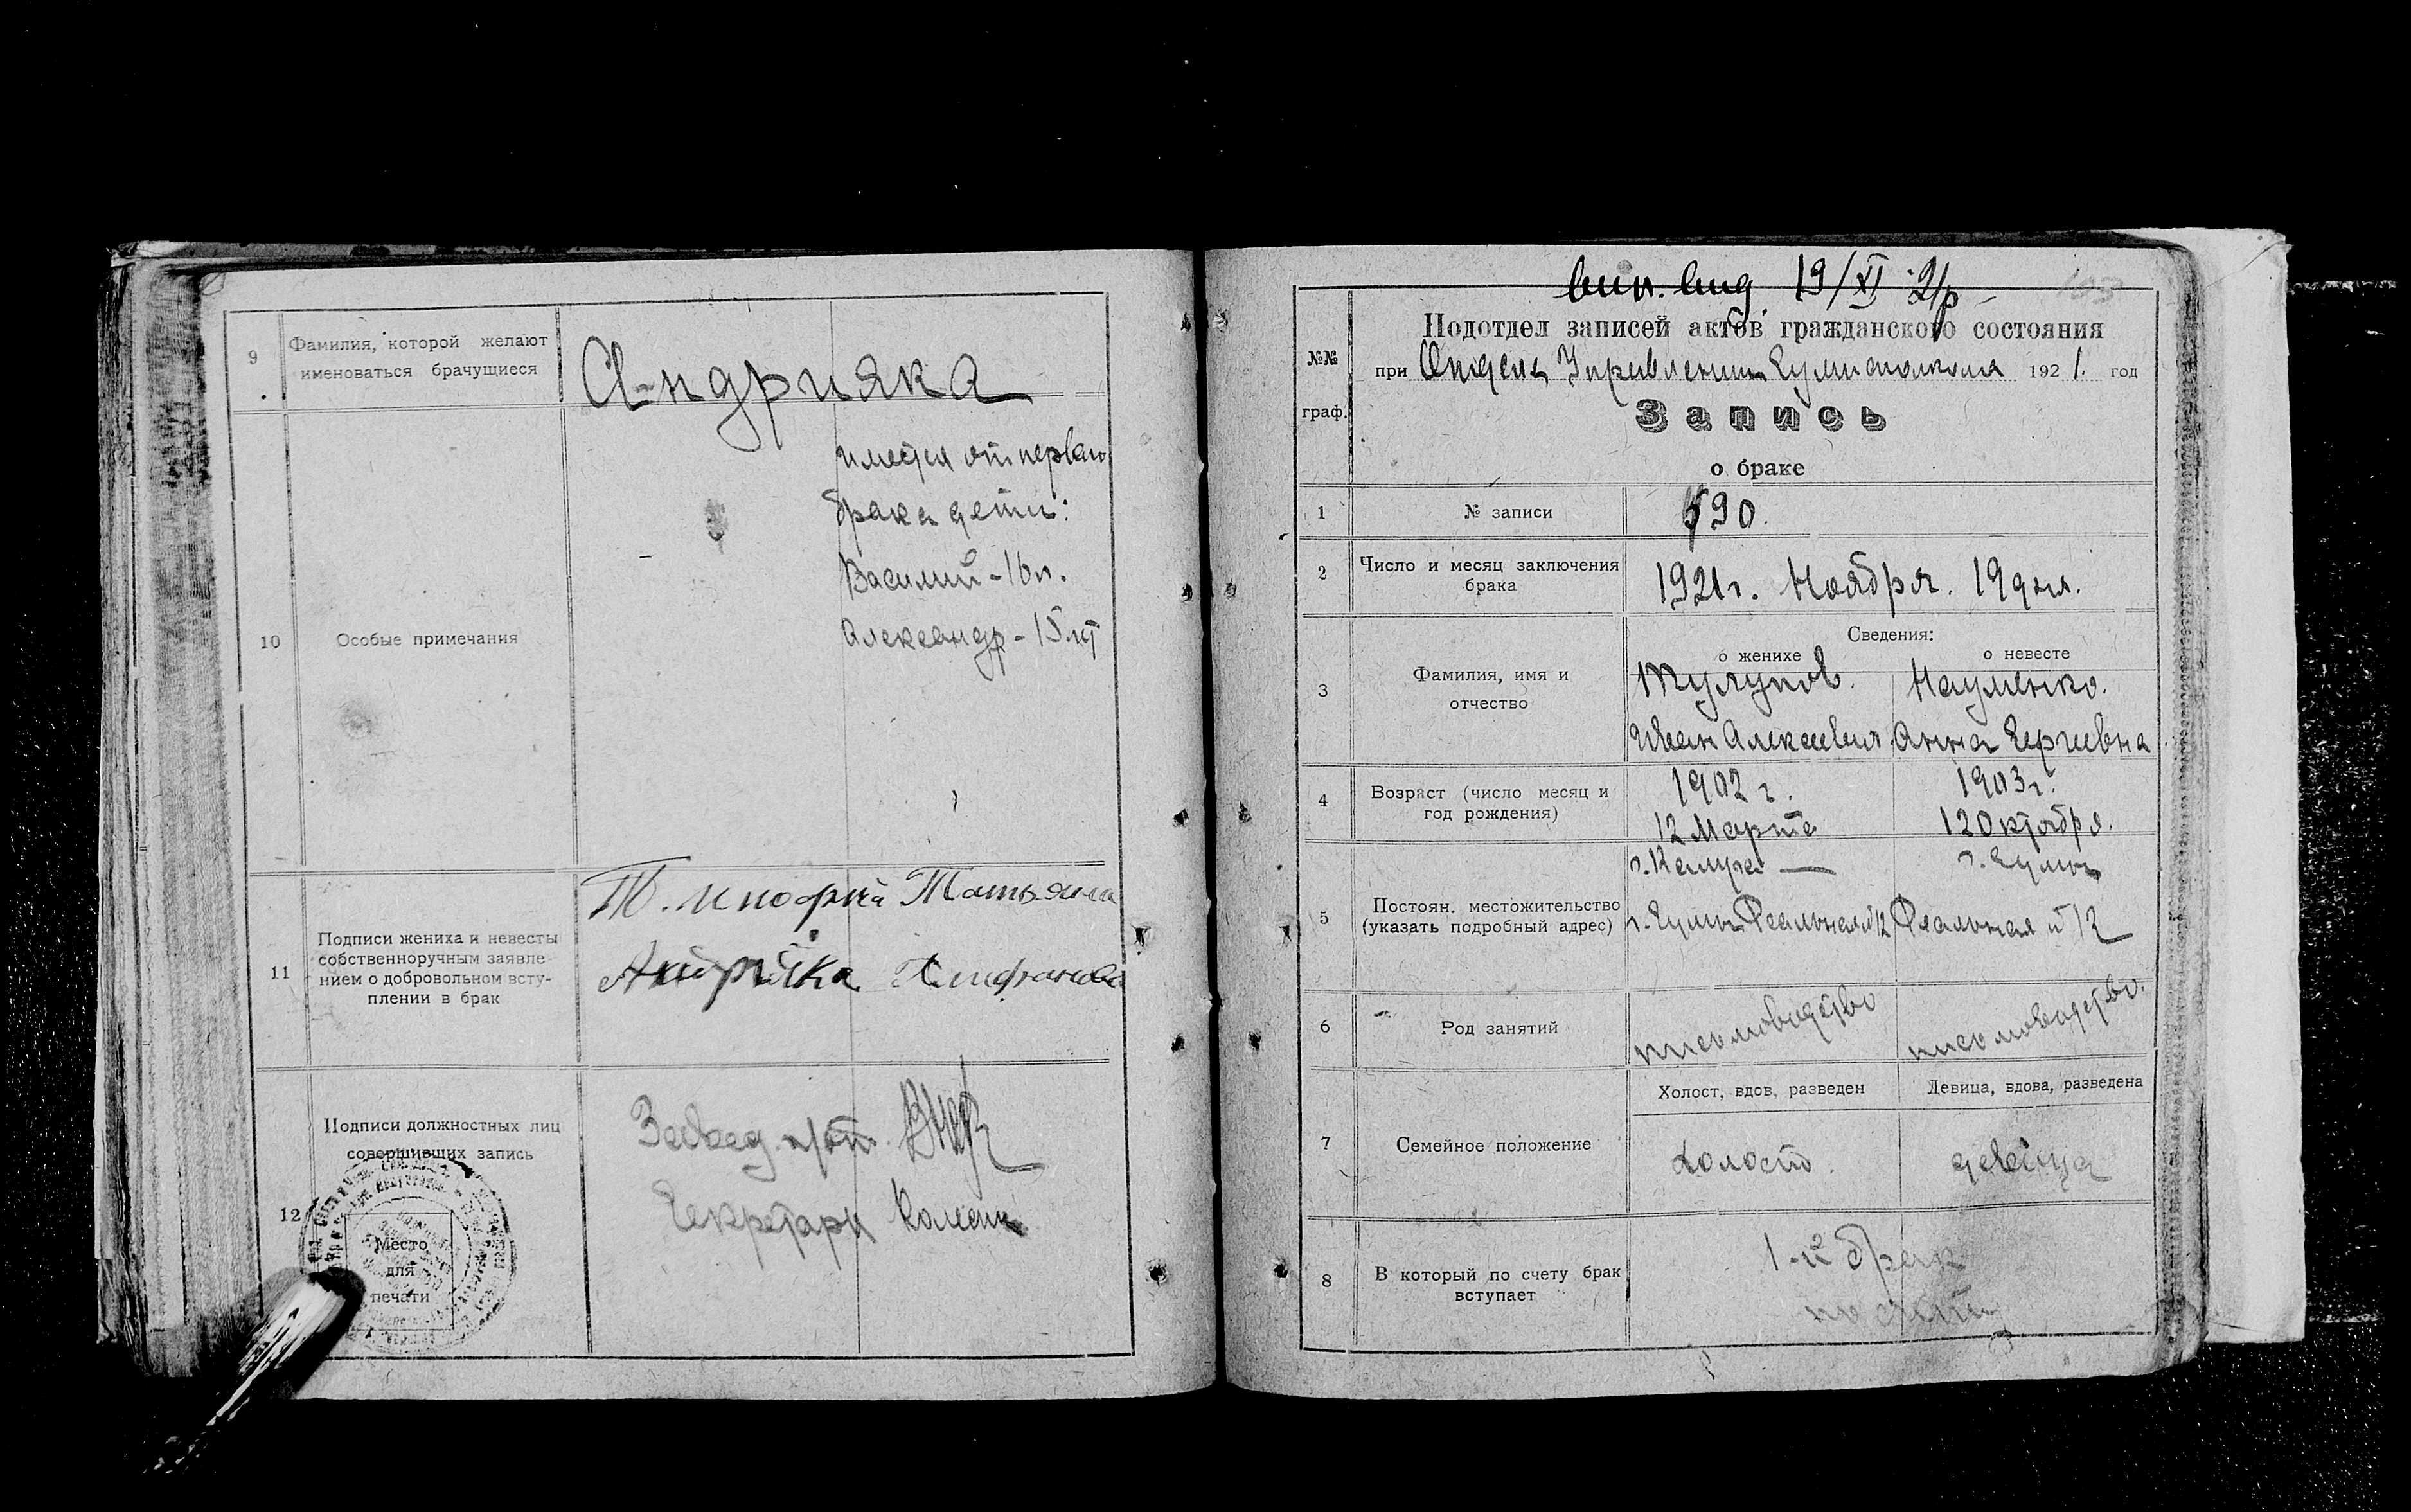 9
Фамилия, которой желают
именоваться брачущиеся
Андрияка
10
Особые примечания
имеются от первого
брака дети:
Василий - 16 л.
Александр - 15 лет
11
Подписи жениха и невесты
собственноручным заявле-
нием о добровольном всту-
плении в брак
Татьяна
Андрияка
12
Подписи должностных лиц
совершивших запись
Завед. п/от.
Секретарь
Место
для
печати
вып. выд. 19/XI 21
№№
граф.
Подотдел записей актов гражданского состояния
при Отделе Управления 1921. год
Запись
о браке
1
№ записи
590.
2
Число и месяц заключения
брака
1921 г. Ноября. 19 дня.
3
Фамилия, имя и
отчество
Сведения:
о женихе
о невесте
Тулупов. Науменко.
Иван Алексеевич Анна Сергеевна
4
Возраст (число месяц и
год рождения)
1902 г. 1903 г.
12 Марта 12 Октября.
5
Постоян. местожительство
(указать подробный адрес)
г. Калуга — г. Сумы
г. Сумы Реальная № 12 Реальная № 12
6
Род занятий
письмоводство письмоводство.
7
Семейное положение
Холост, вдов, разведен
Девица, вдова, разведена
холост. девица
8
В который по счету брак
вступает
1-й брак
по счету